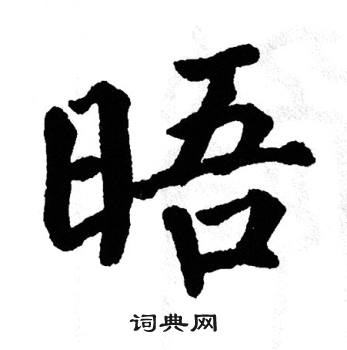 晤
词典网